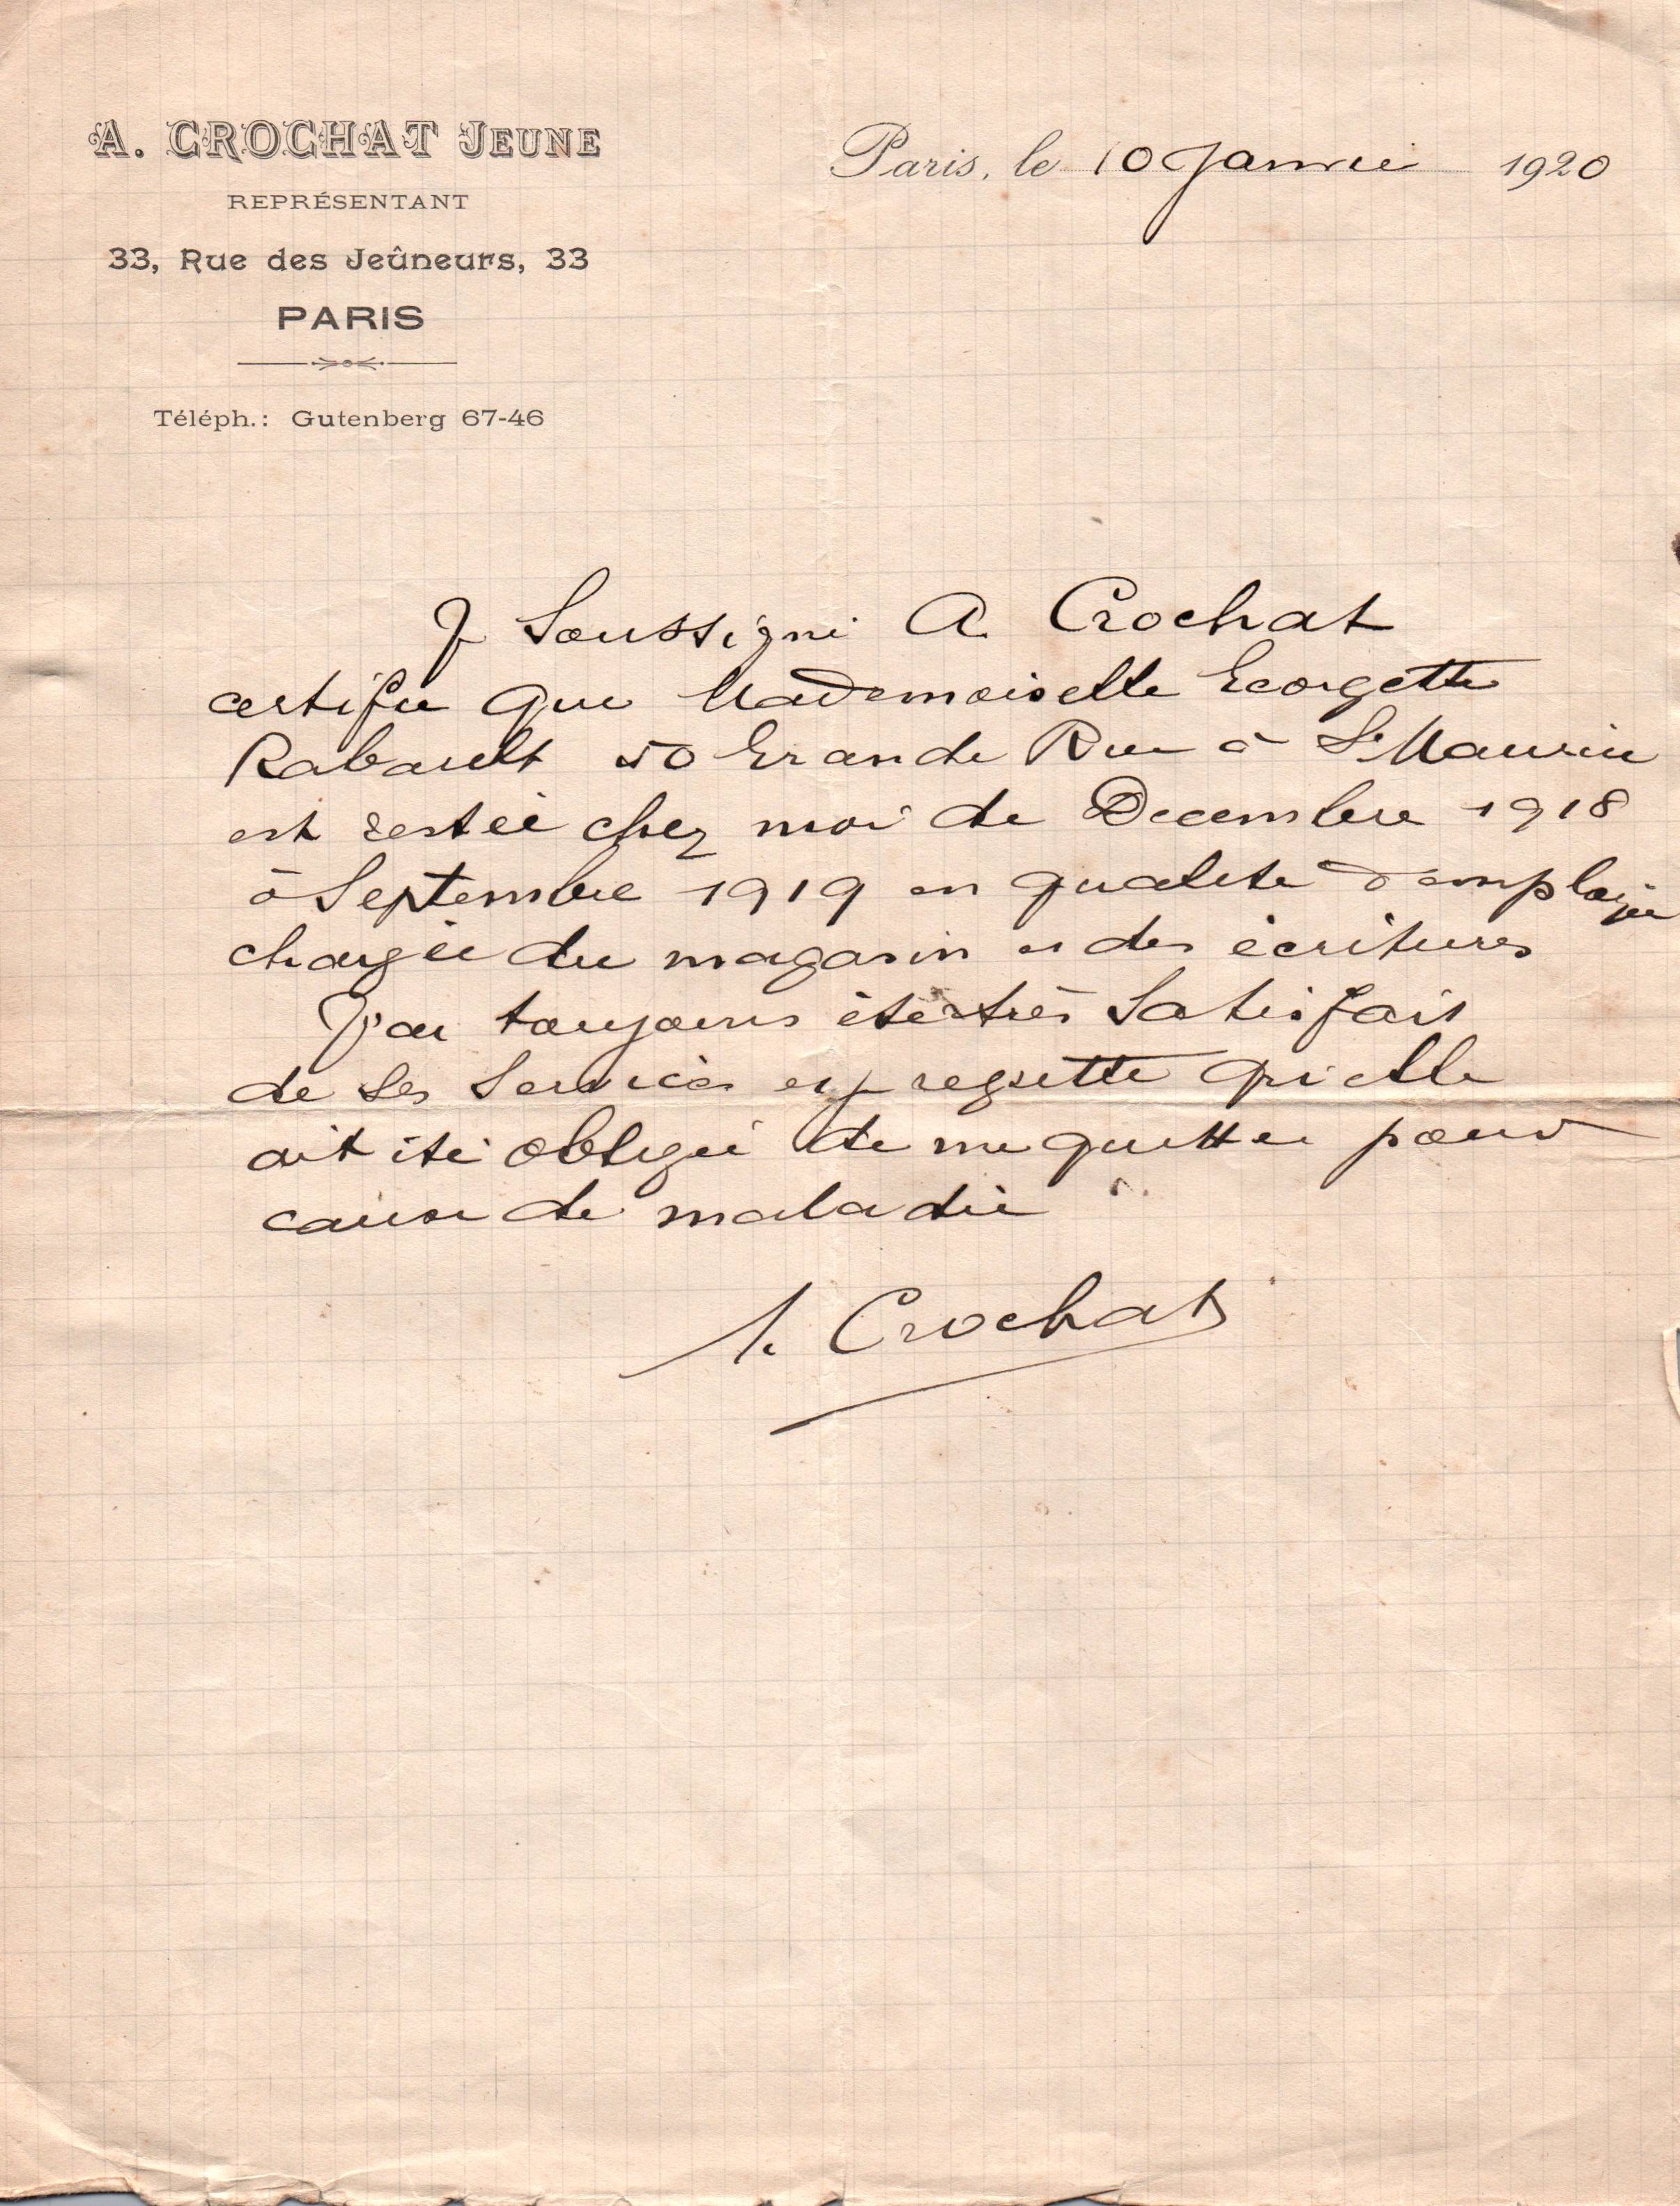 A. CROCHAT JEUNE
REPRÉSENTANT
33, Rue des Jeûneurs, 33
PARIS
Téléph.: Gutenberg 67-46
Paris, le 10 Janvier 1920
Je Soussigné A. Crochat
certifie que Mademoiselle Georgette
Rabault 50 Grande Rue à St Maurice
est restée chez moi de Decembre 1918
à Septembre 1919 en qualité d'employée
chargée du magasin et des écritures
J'ai toujours été très Satisfait
de Ses Services et regrette qu'elle
ait été obligée de me quitter pour
cause de maladie
A. Crochat